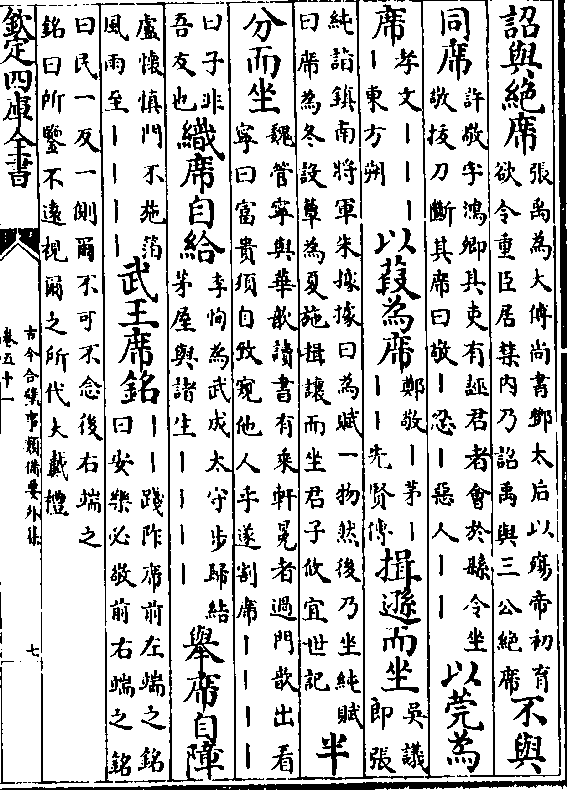 詔與絶席
張禹為太傅尚書鄧太后以殤帝初育
欲令重臣居禁内乃詔禹與三公絶席
不與
同席
許敬字鴻卿其吏有誣君者會於縣令坐
敬拔刀斷其席曰敬丨忍丨惡人丨丨
以莞為
席
孝文丨丨丨
丨東方朔
以葭為席
鄭敬丨茅丨
丨丨先賢傳
揖遜而坐
吳議
郎張
純詣鎮南將軍朱據據曰為賦一物然後乃坐純賦
曰席為冬設簟為夏施揖讓而坐君子攸宜世記
半
分而坐
魏管寧與華歆讀書有乘軒冕者過門歆出看
寧曰富貴須自致窺他人乎遂割席丨丨丨丨
曰子非
吾友也
織席自給
李恂為武成太守步歸結
茅屋與諸生丨丨丨丨
舉席自障
盧懷慎門不施箔
風雨至丨丨丨丨
武王席銘
丨丨踐阼席前左端之銘
曰安樂必敬前右端之銘
曰民一反一側爾不可不念後右端之
銘曰所鑒不遠視爾之所代大戴禮
欽定四庫全書
古今合璧事類備要外集
卷五十一
七